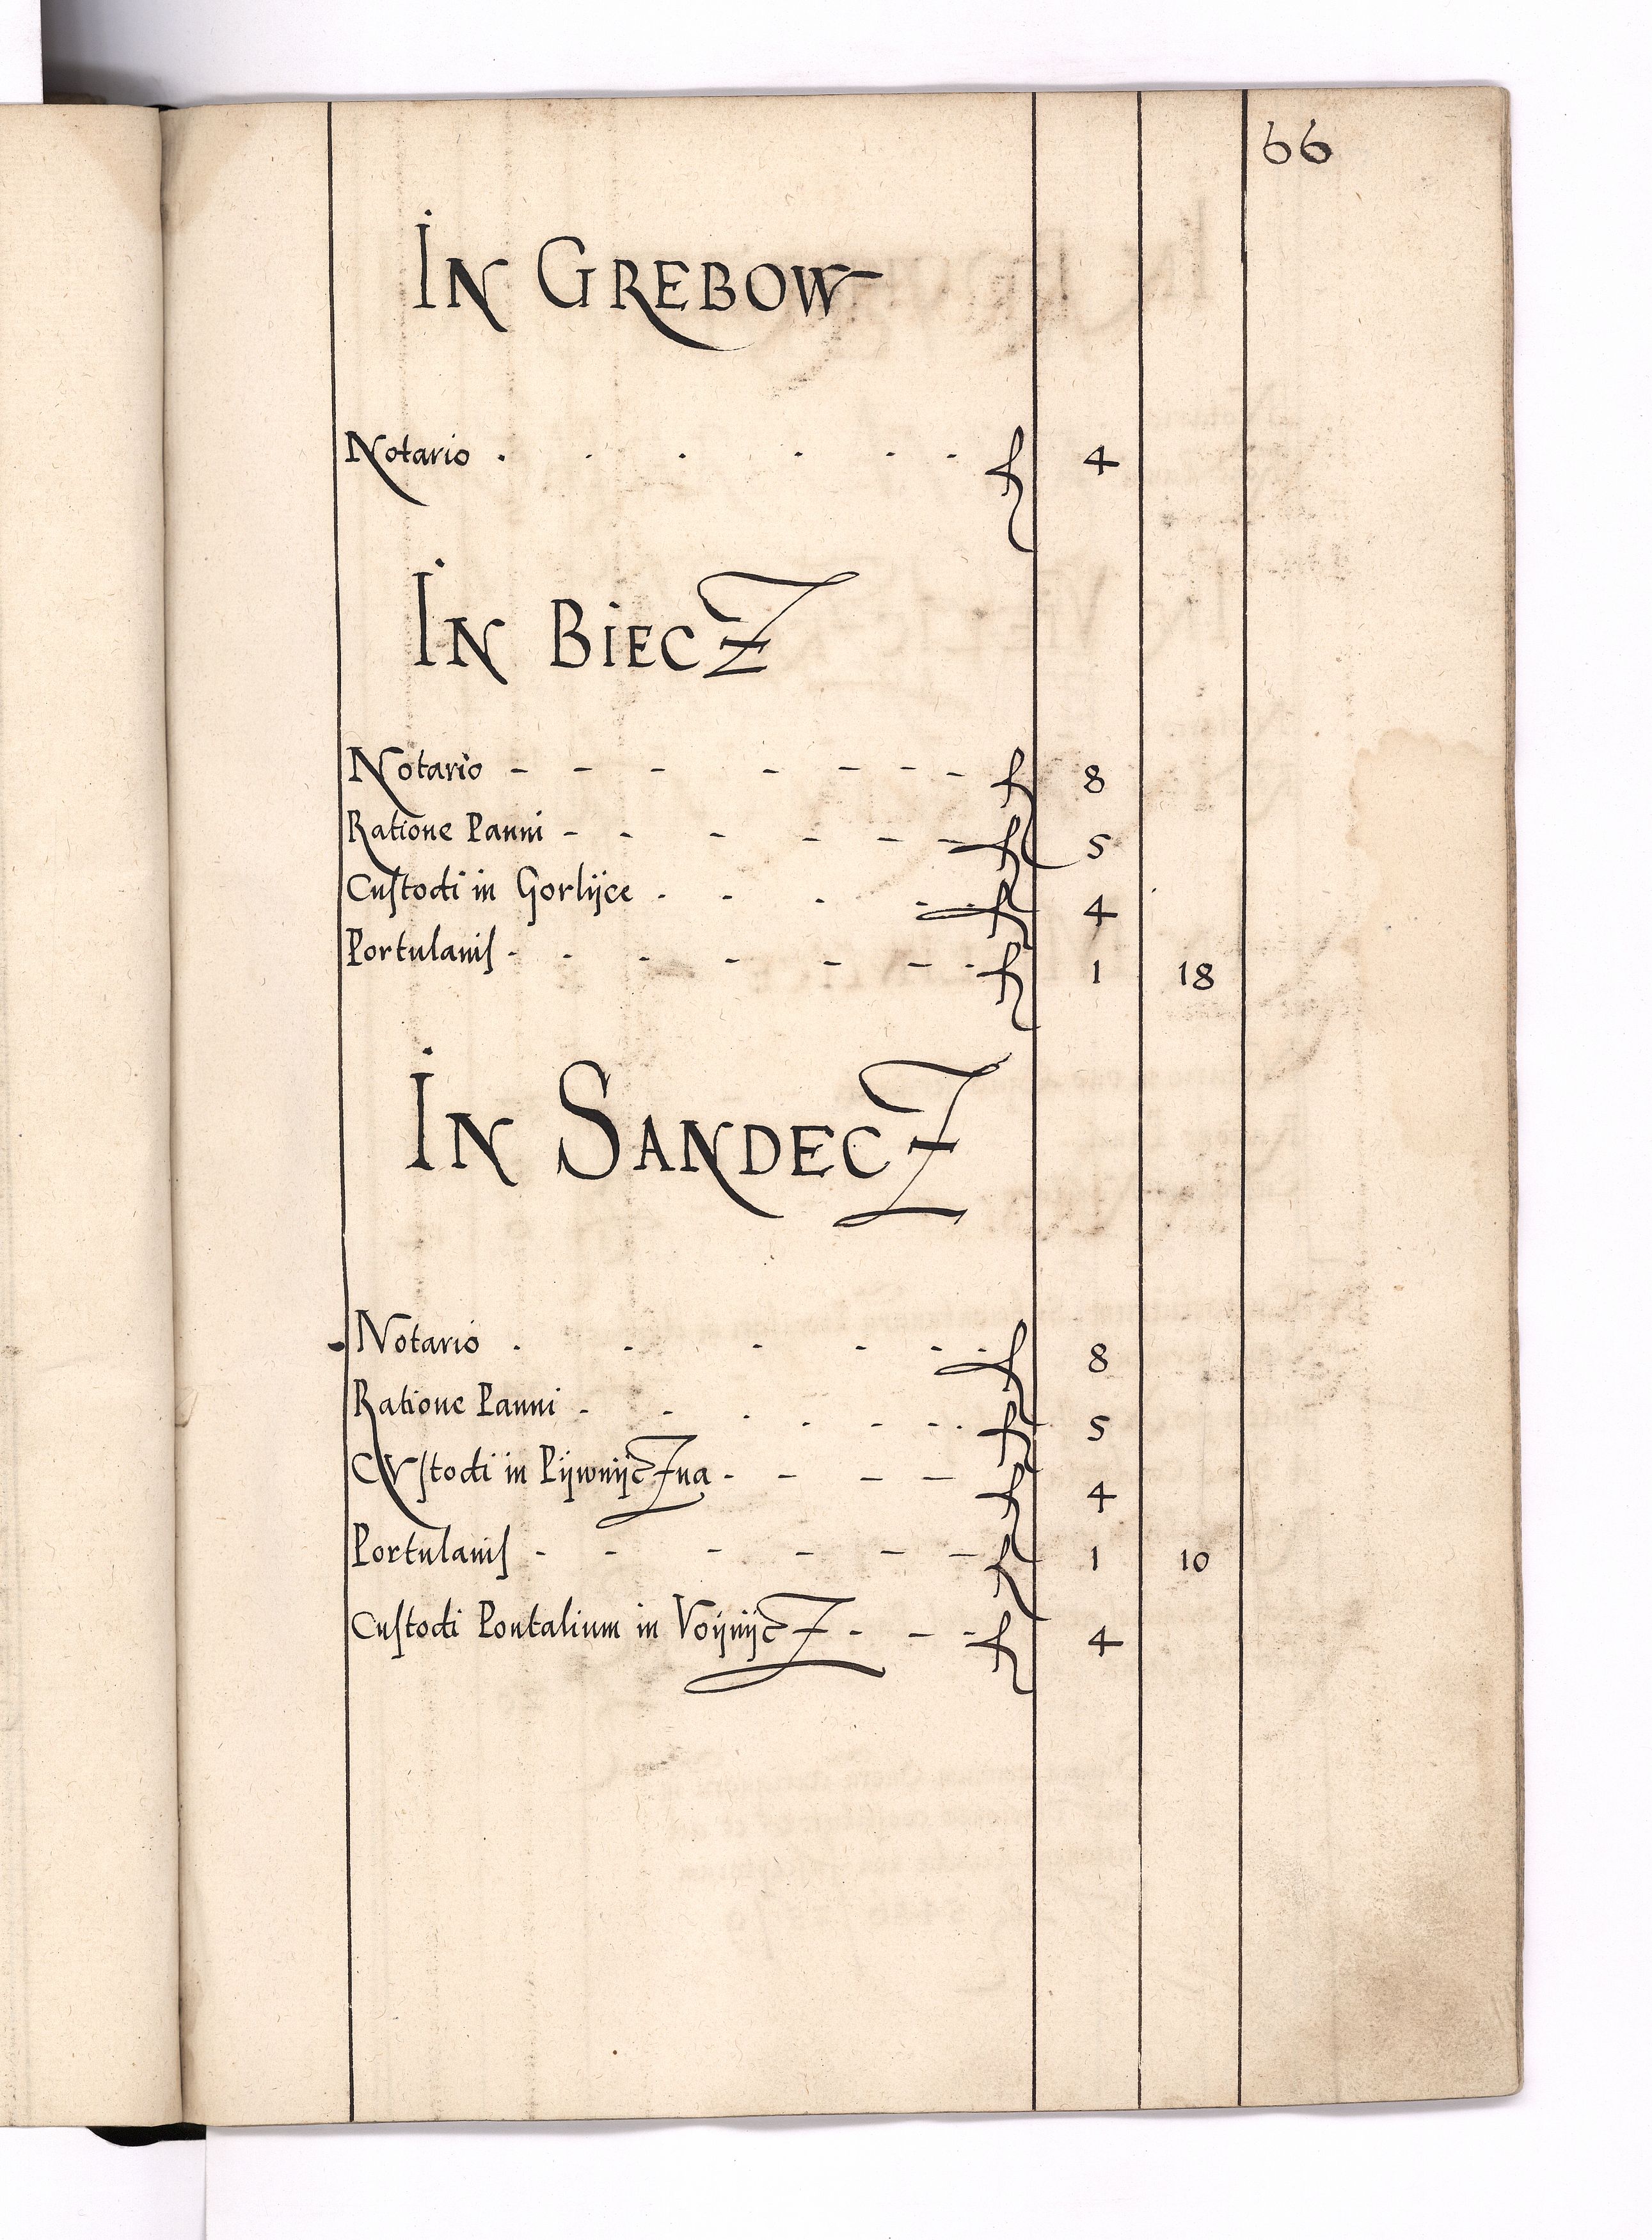 66
In Grebow
Notario . . . . . . f 4
In Biecz
Notario - - - - - - - f 8
Ratione Panni - - - - - - f 5
Custodi in Gorlijce . - . - . f 4
Portulanis - - - - - - - f 1 18
In Sandecz
Notario . . . . . . f 8
Ratione Panni - - . . - - . f 5
Custodi in Pijwnijczna - - - - f 4
Portulanis - - - - - - f 1 10
Custodi Pontalium in Voijnijcz - - - f 4